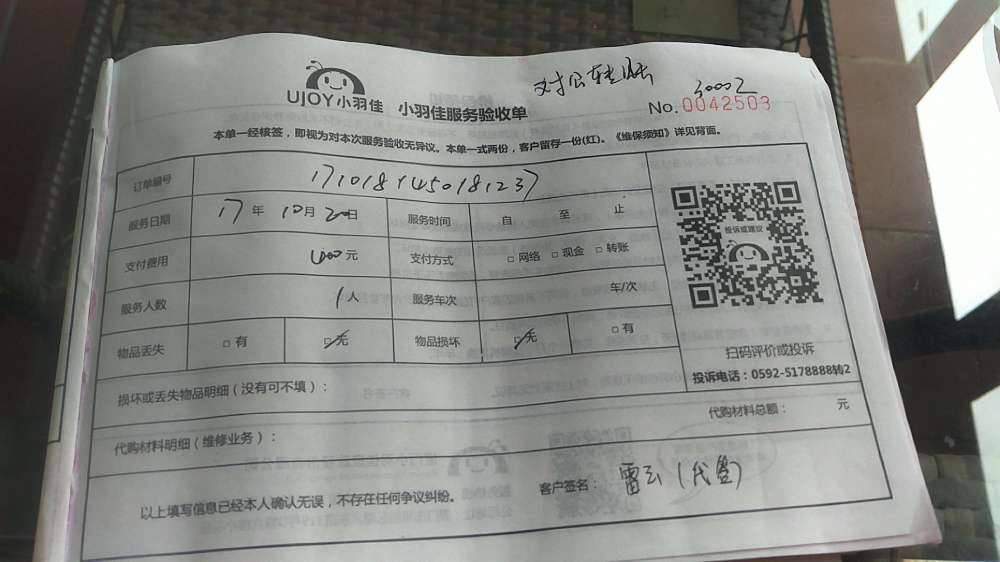 对公转账
3000元
UJOY小羽佳 小羽佳服务验收单
No.0042503
本单一经核签，即视为对本次服务验收无异议。本单一式两份，客户留存一份(红)。《维保须知》详见背面。
订单编号 1710181450181237
服务日期 17年 10月 20日 服务时间 自 至 止
支付费用 元 支付方式 □网络 □现金 □转账
服务人数 1人 服务车次 车/次
物品丢失 □有 ☑无 物品损坏 ☑无 □有
投诉或建议
扫码评价或投诉
投诉电话：0592-5178888转2
损坏或丢失物品明细（没有可不填）：
代购材料明细（维修业务）： 代购材料总额： 元
以上填写信息已经本人确认无误，不存在任何争议纠纷。 客户签名： 雷云（代签）